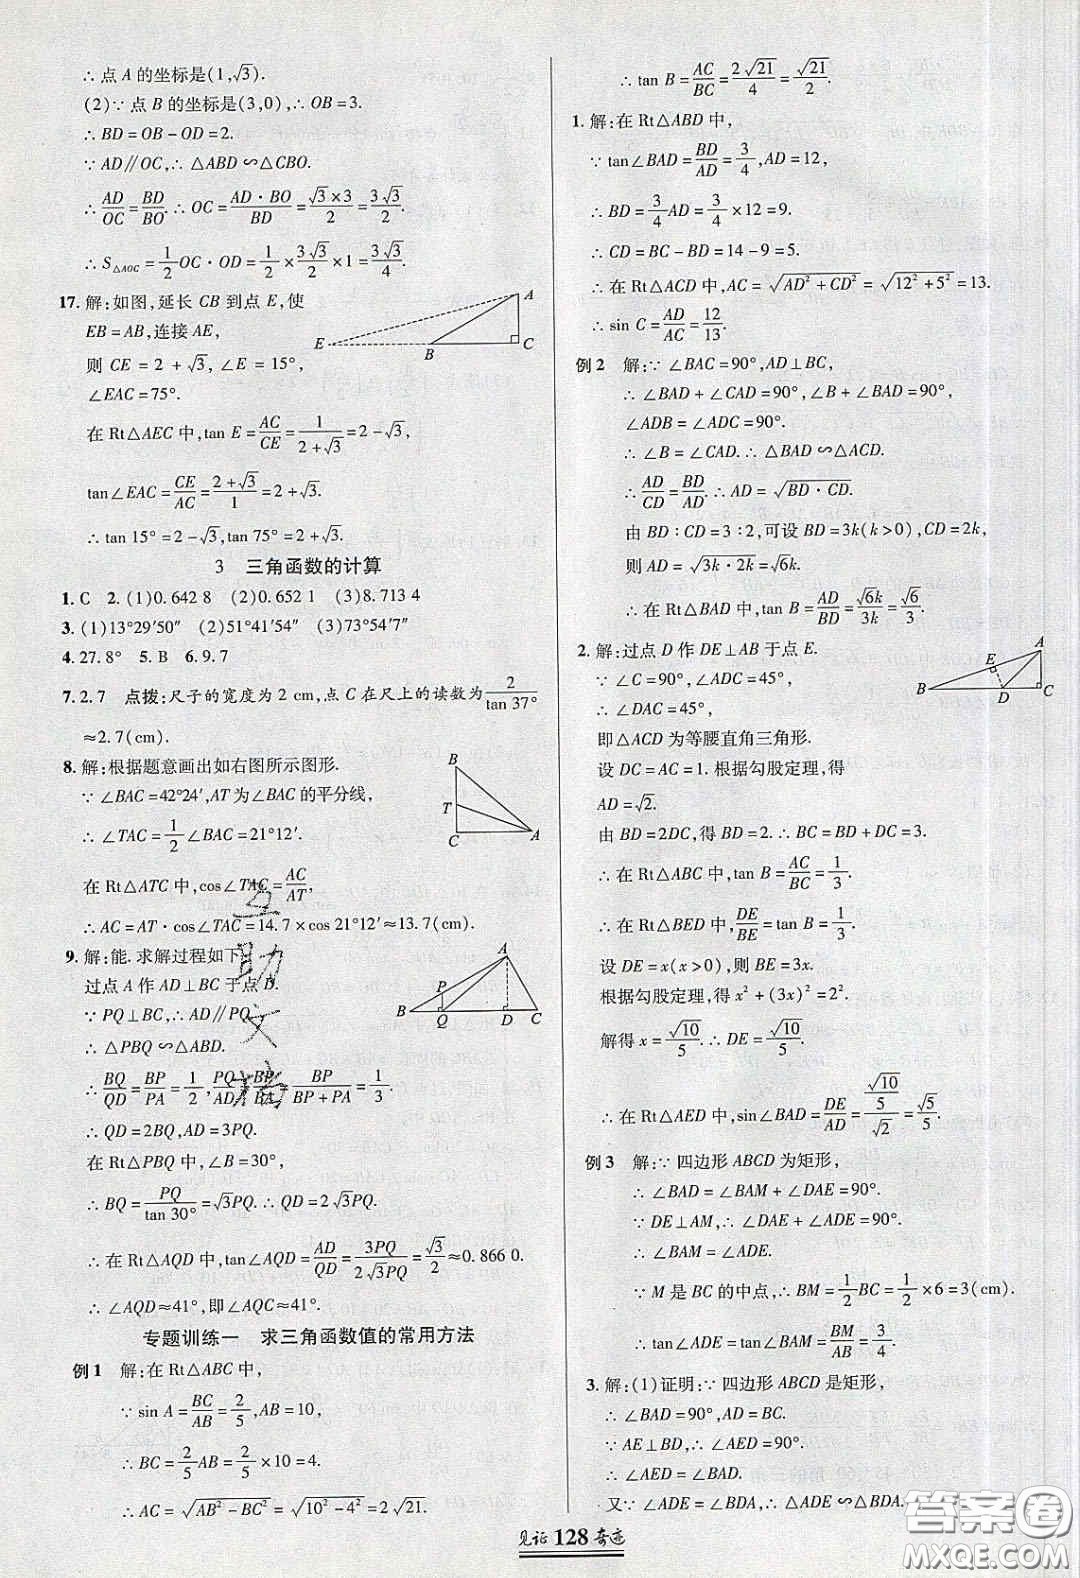 ∴点A的坐标是(1,√3).
(2)∵点B的坐标是(3,0),∴OB=3.
∴BD=OB-OD=2.
∵AD∥OC,∴△ABD∽△CBO.
∴AD/OC=BD/BO.∴OC=AD·BO/BD=√3×3/2=3√3/2.
∴S△AOC=1/2OC·OD=1/2×3√3/2×1=3√3/4.
17.解:如图,延长CB到点E,使
EB=AB,连接AE,
则CE=2+√3,∠E=15°,
∠EAC=75°.
在Rt△AEC中,tan E=AC/CE=1/(2+√3)=2-√3,
tan∠EAC=CE/AC=(2+√3)/1=2+√3.
∴tan 15°=2-√3,tan 75°=2+√3.
A
E
B
C
3 三角函数的计算
1.C 2.(1)0.642 8 (2)0.652 1 (3)8.713 4
3.(1)13°29′50″ (2)51°41′54″ (3)73°54′7″
4.27.8° 5.B 6.9.7
7.2.7 点拨:尺子的宽度为2 cm,点C在尺上的读数为2/tan 37°
≈2.7(cm).
8.解:根据题意画出如右图所示图形.
∵∠BAC=42°24′,AT为∠BAC的平分线,
∴∠TAC=1/2∠BAC=21°12′.
在Rt△ATC中,cos∠TAC=AC/AT,
∴AC=AT·cos∠TAC=14.7×cos 21°12′≈13.7(cm).
B
T
C
A
9.解:能.求解过程如下:
过点A作AD⊥BC于点D.
∵PQ⊥BC,∴AD∥PQ.
∴△PBQ∽△ABD.
∴BQ/QD=BP/PA=1/2,PQ/AD=BP/BA=BP/(BP+PA)=1/3.
∴QD=2BQ,AD=3PQ.
在Rt△PBQ中,∠B=30°,
∴BQ=PQ/tan 30°=√3PQ.∴QD=2√3PQ.
∴在Rt△AQD中,tan∠AQD=AD/QD=3PQ/2√3PQ=√3/2≈0.866 0.
∴∠AQD≈41°,即∠AQC≈41°.
A
P
B
Q
D
C
专题训练一 求三角函数值的常用方法
例1 解:在Rt△ABC中,
∵sin A=BC/AB=2/5,AB=10,
∴BC=2/5AB=2/5×10=4.
∴AC=√(AB²-BC²)=√(10²-4²)=2√21.
∴tan B=AC/BC=2√21/4=√21/2.
1.解:在Rt△ABD中,
∵tan∠BAD=BD/AD=3/4,AD=12,
∴BD=3/4AD=3/4×12=9.
∴CD=BC-BD=14-9=5.
∴在Rt△ACD中,AC=√(AD²+CD²)=√(12²+5²)=13.
∴sin C=AD/AC=12/13.
例2 解:∵∠BAC=90°,AD⊥BC,
∴∠BAD+∠CAD=90°,∠B+∠BAD=90°,
∠ADB=∠ADC=90°.
∴∠B=∠CAD.∴△BAD∽△ACD.
∴AD/CD=BD/AD.∴AD=√(BD·CD).
由BD∶CD=3∶2,可设BD=3k(k>0),CD=2k,
则AD=√(3k·2k)=√6k.
∴在Rt△BAD中,tan B=AD/BD=√6k/3k=√6/3.
2.解:过点D作DE⊥AB于点E.
∵∠C=90°,∠ADC=45°,
∴∠DAC=45°,
即△ACD为等腰直角三角形.
设DC=AC=1.根据勾股定理,得
AD=√2.
由BD=2DC,得BD=2.∴BC=BD+DC=3.
∴在Rt△ABC中,tan B=AC/BC=1/3.
∴在Rt△BED中,DE/BE=tan B=1/3.
设DE=x(x>0),则BE=3x.
根据勾股定理,得x²+(3x)²=2².
解得x=√10/5.∴DE=√10/5.
∴在Rt△AED中,sin∠BAD=DE/AD=(√10/5)/√2=√5/5.
A
E
B
D
C
例3 解:∵四边形ABCD为矩形,
∴∠BAD=∠BAM+∠DAE=90°.
∵DE⊥AM,∴∠DAE+∠ADE=90°.
∴∠BAM=∠ADE.
∵M是BC的中点,∴BM=1/2BC=1/2×6=3(cm).
∴tan∠ADE=tan∠BAM=BM/AB=3/4.
3.解:(1)证明:∵四边形ABCD是矩形,
∴∠BAD=90°,AD=BC.
∵AE⊥BD,∴∠AED=90°.
∴∠AED=∠BAD.
又∵∠ADE=∠BDA,∴△ADE∽△BDA.
见证128奇迹
答案圈
MXQE.COM